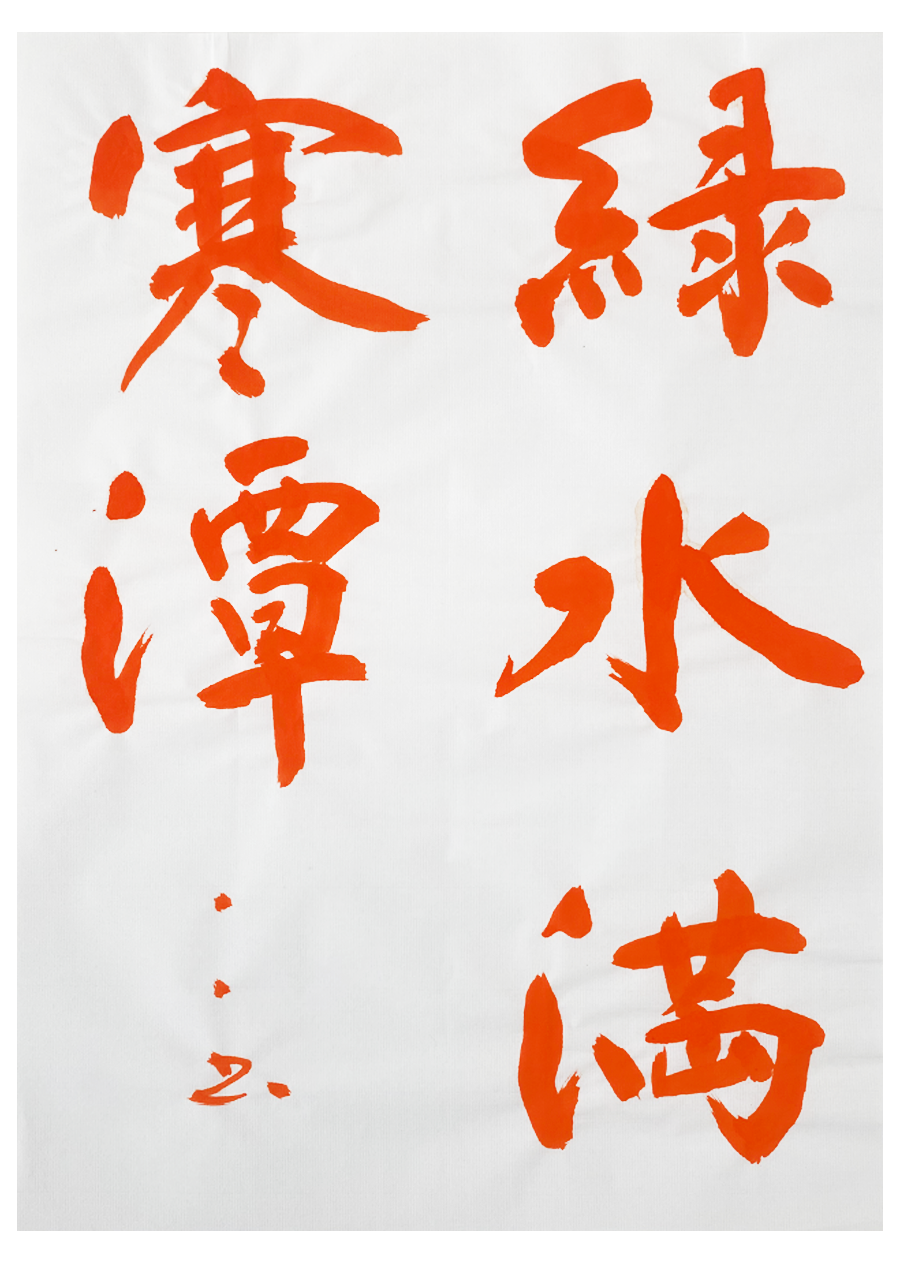 緑水満
寒潭